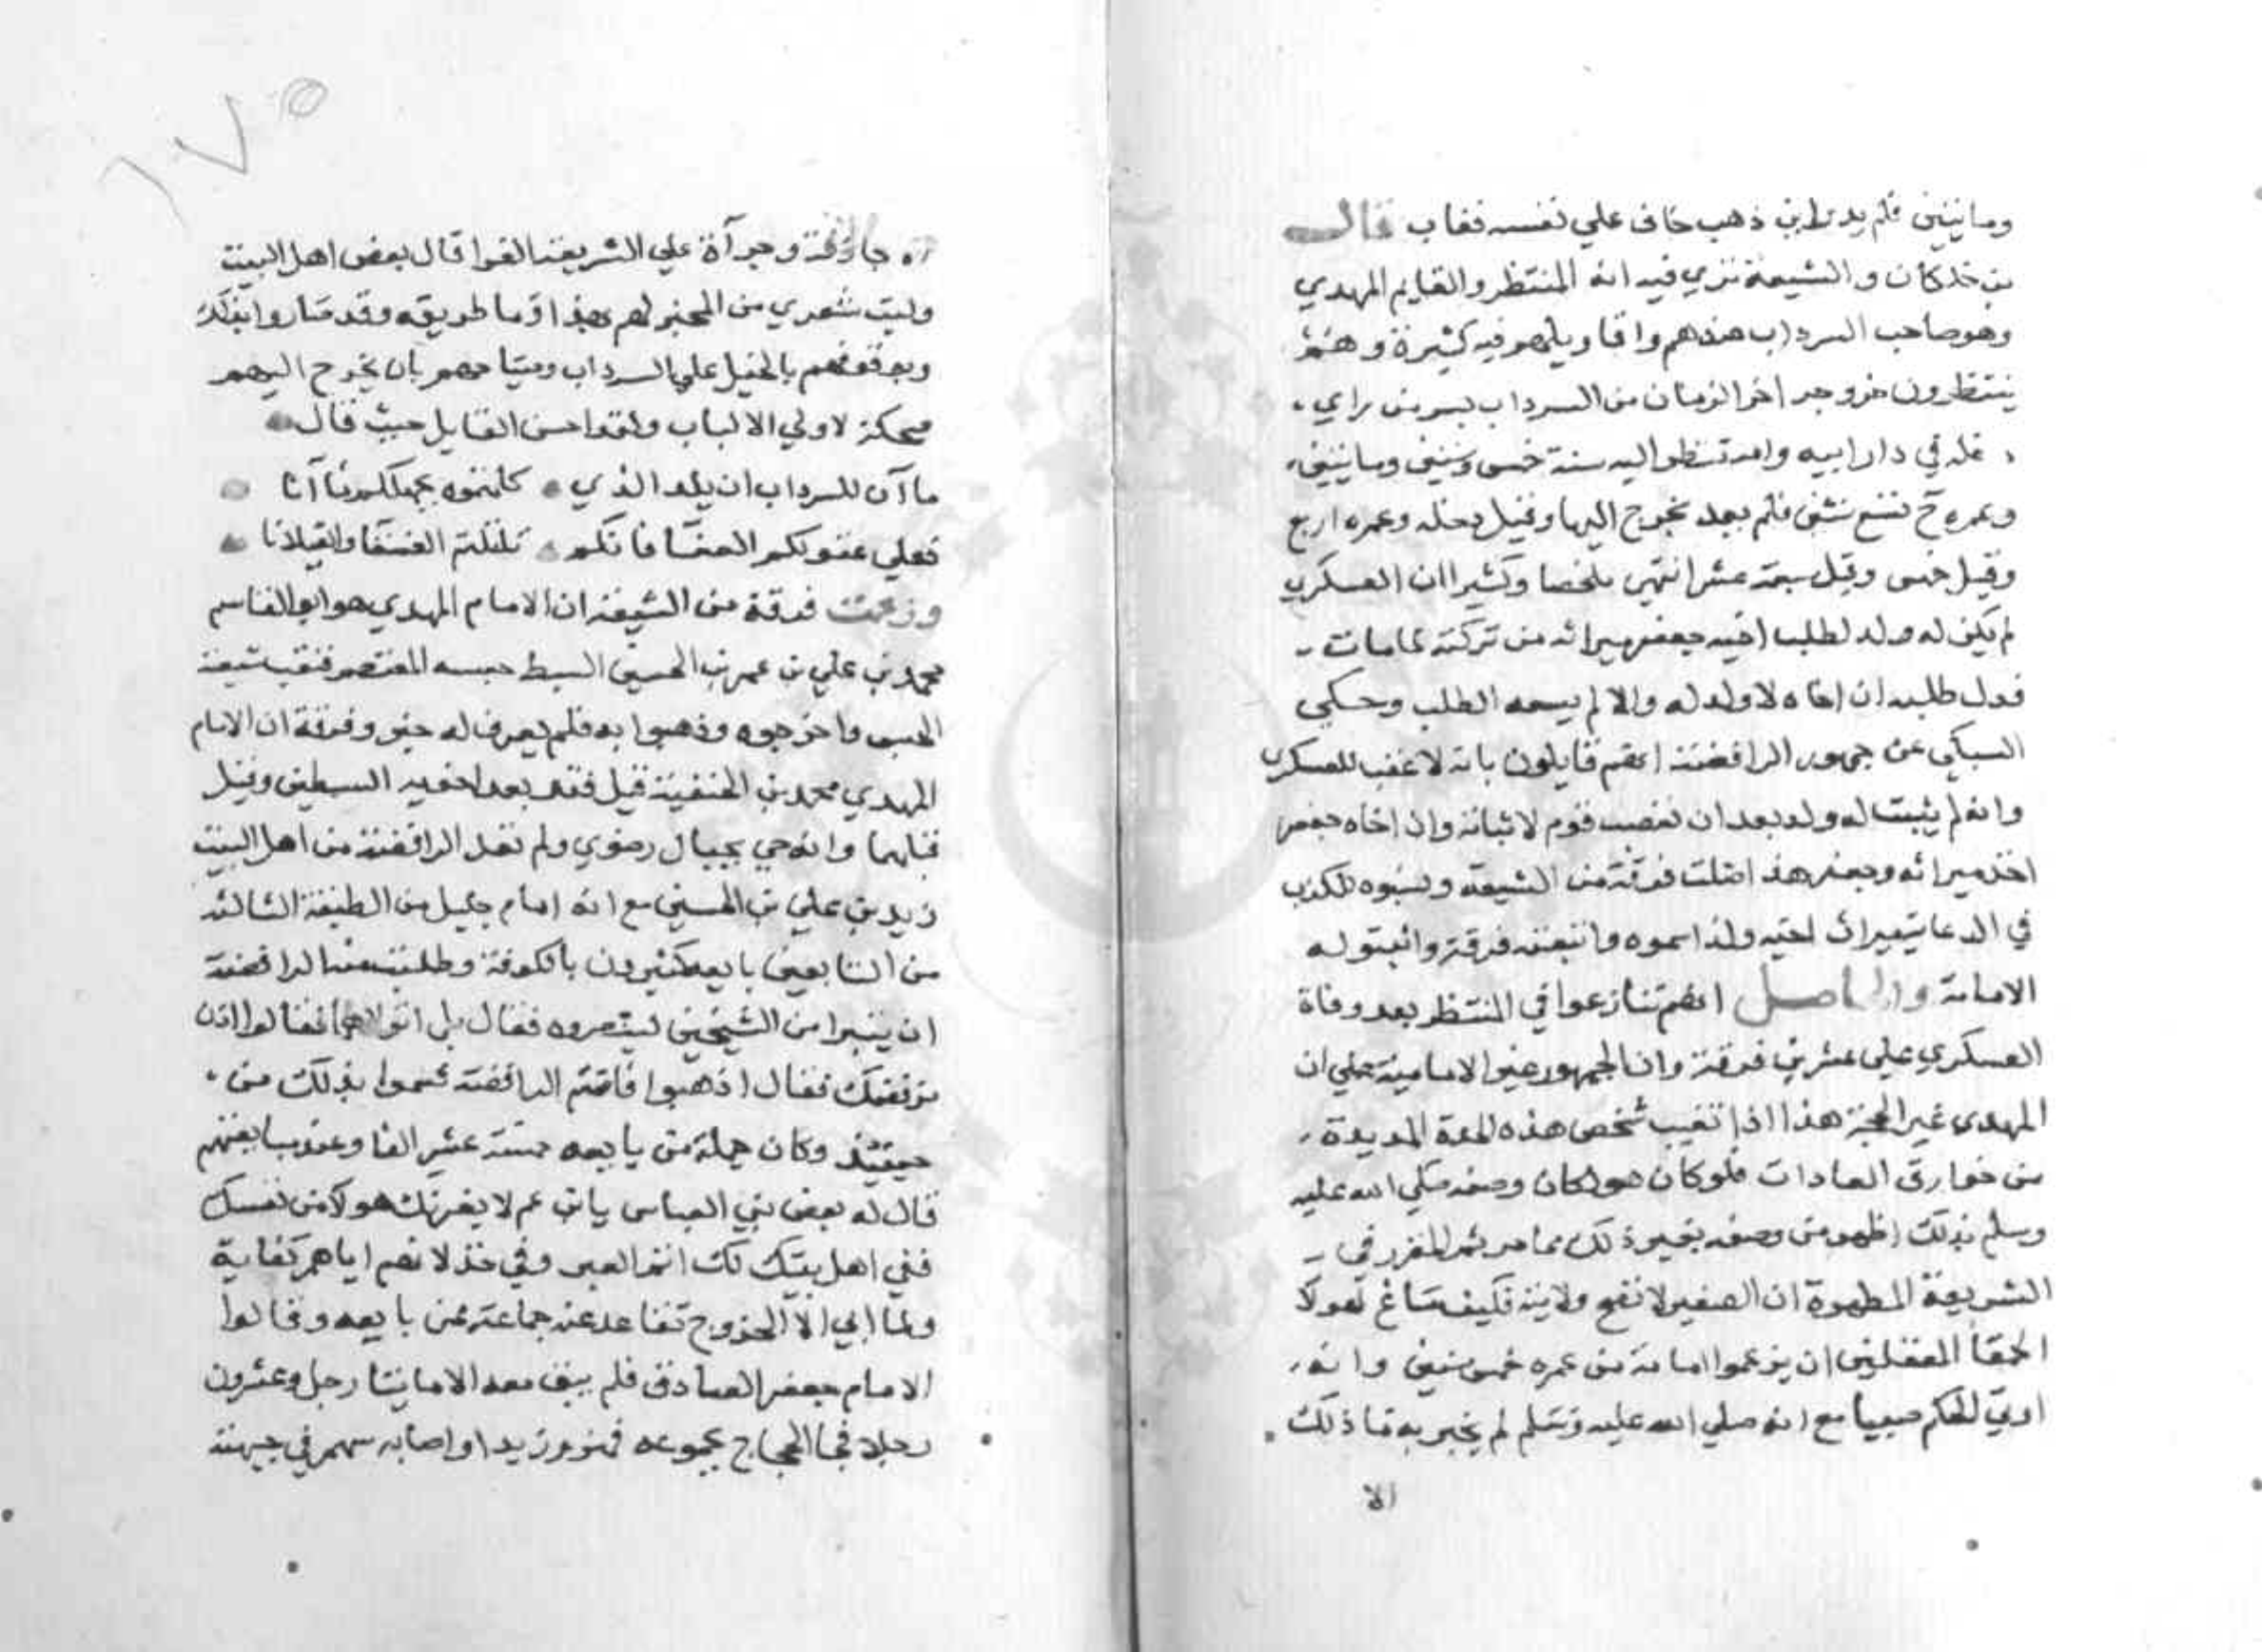 وماتيين فلم يدر اين ذهب خاف علي نفسه فغاب قال
بن خلكان والشيعة تري فيه انه المنتظر والقايم المهدي
وهو صاحب السرداب عندهم واقاويلهم فيه كثيرة وهم
ينتظرون خروجه اخر الزمان من السرداب بسر من راي
دخله في دار ابيه وامه تنظر اليه سنة خمس وستين وماتيين
وعمره ح تسع سنين فلم يعد يخرج اليها وقيل دخله وعمره اربع
وقيل خمس وقيل سبعة عشر انتهي ملخصا وكثيرا ان العسكري
لم يكن له ولد لطلب اخيه جعفر ميراثه من تركته لما مات
فدل طلبه ان اخاه لا ولد له والا لم يسعه الطلب وحكي
السبكي عن جمهور الرافضة انهم قايلون بانه لا عقب للعسكري
وانه لم يثبت له ولد بعد ان تعصب قوم لاثباته وان اخاه جعفر
اخذ ميراثه وجعفر هذا ضللت فرقة من الشيعة ونسبوه للكذب
في ادعايه ميراث اخيه ولذا سموه واتبعته فرقة واثبتوا له
الامامة والحاصل انهم تنازعوا في المنتظر بعد وفاة
العسكري علي عشرين فرقة وان الجمهور غير الامامية علي ان
المهدي غير الحجة هذا اذ تغيب شخص هذه المدة المديدة
من خوارق العادات فلو كان هو لكان وصفه صلي الله عليه
وسلم بذلك اظهر من وصفه بغير ذلك مما مر ثم المقرر في
الشريعة المطهرة ان الصغير لا تصح ولايته فكيف ساغ لهولا
الحمقا المغفلين ان يزعموا امامة من عمره خمس سنين وانه
اوتي الحكم صبيا مع انه صلي الله عليه وسلم لم يخبر به ما ذلك
الا
١٧٥
مجازفة وجرآة علي الشريعة الغرا قال بعض اهل البيت
وليت شعري من المخبر لهم بهذا وما طريقه وقد صاروا بذلك
وبوقوفهم بالخيل علي السرداب وصياحهم بان يخرج اليهم
ضحكة لاولي الالباب ولقد احسن القايل حيث قال
ما آن للسرداب ان يلد الذي كلمتموه بجهلكم ما آنا
فعلي عقولكم العفا فانكم ثلثتم العنقا والغيلانا
وزعمت فرقة من الشيعة ان الامام المهدي هو ابو القاسم
محمد بن علي بن عمر بن الحسين السبط حبسه المعتصم فنقب شيعته
الحبس واخرجوه وذهبوا به فلم يعرف له خبر وفرقة ان الامام
المهدي محمد بن الحنفية قيل فقد بعد اخويه السبطين وقيل
قبلهما وانه حي بجبال رضوي ولم تعد الرافضة من اهل البيت
زيد بن علي بن الحسين مع انه امام جليل من الطبقة الثالثه
من التابعين بايعه كثيرون بالكوفة وطلبت منه الرافضة
ان يتبرا من الشيخين لينصروه فقال بل اتولاهما فقالوا اذن
نرفضك فقال اذهبوا فانتم الرافضة فسموا بذلك من
حينيذ وكان جملة من بايعه خمسة عشر الفا وعند مبايعتهم
قال له بعض بني العباس يا ابن عم لا يغرنك هولا من نفسك
ففي اهل بيتك لك اتم العبر وفي خذلانهم اياهم كفاية
ولما ابي الا الخروج تقاعد عنه جماعة ممن بايعه وقالوا
الامام جعفر الصادق فلم يبق معه الا مايتا رجل وعشرون
رجلا فجا الحجاج بجموعه فهزم زيدا واصابه سهم في جبهته